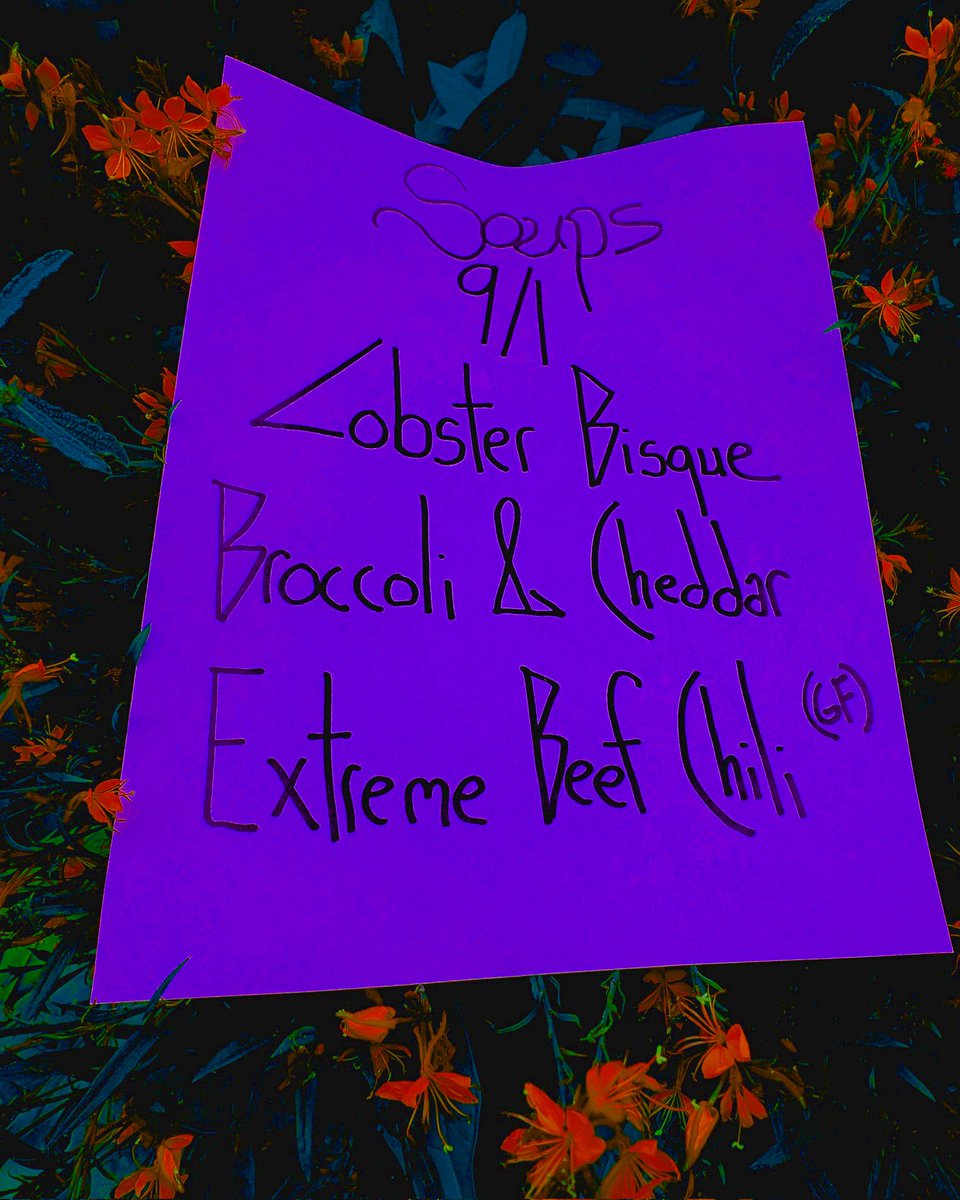 Soups
9/1
Lobster Bisque
Broccoli & Cheddar
Extreme Beef Chili (GF)